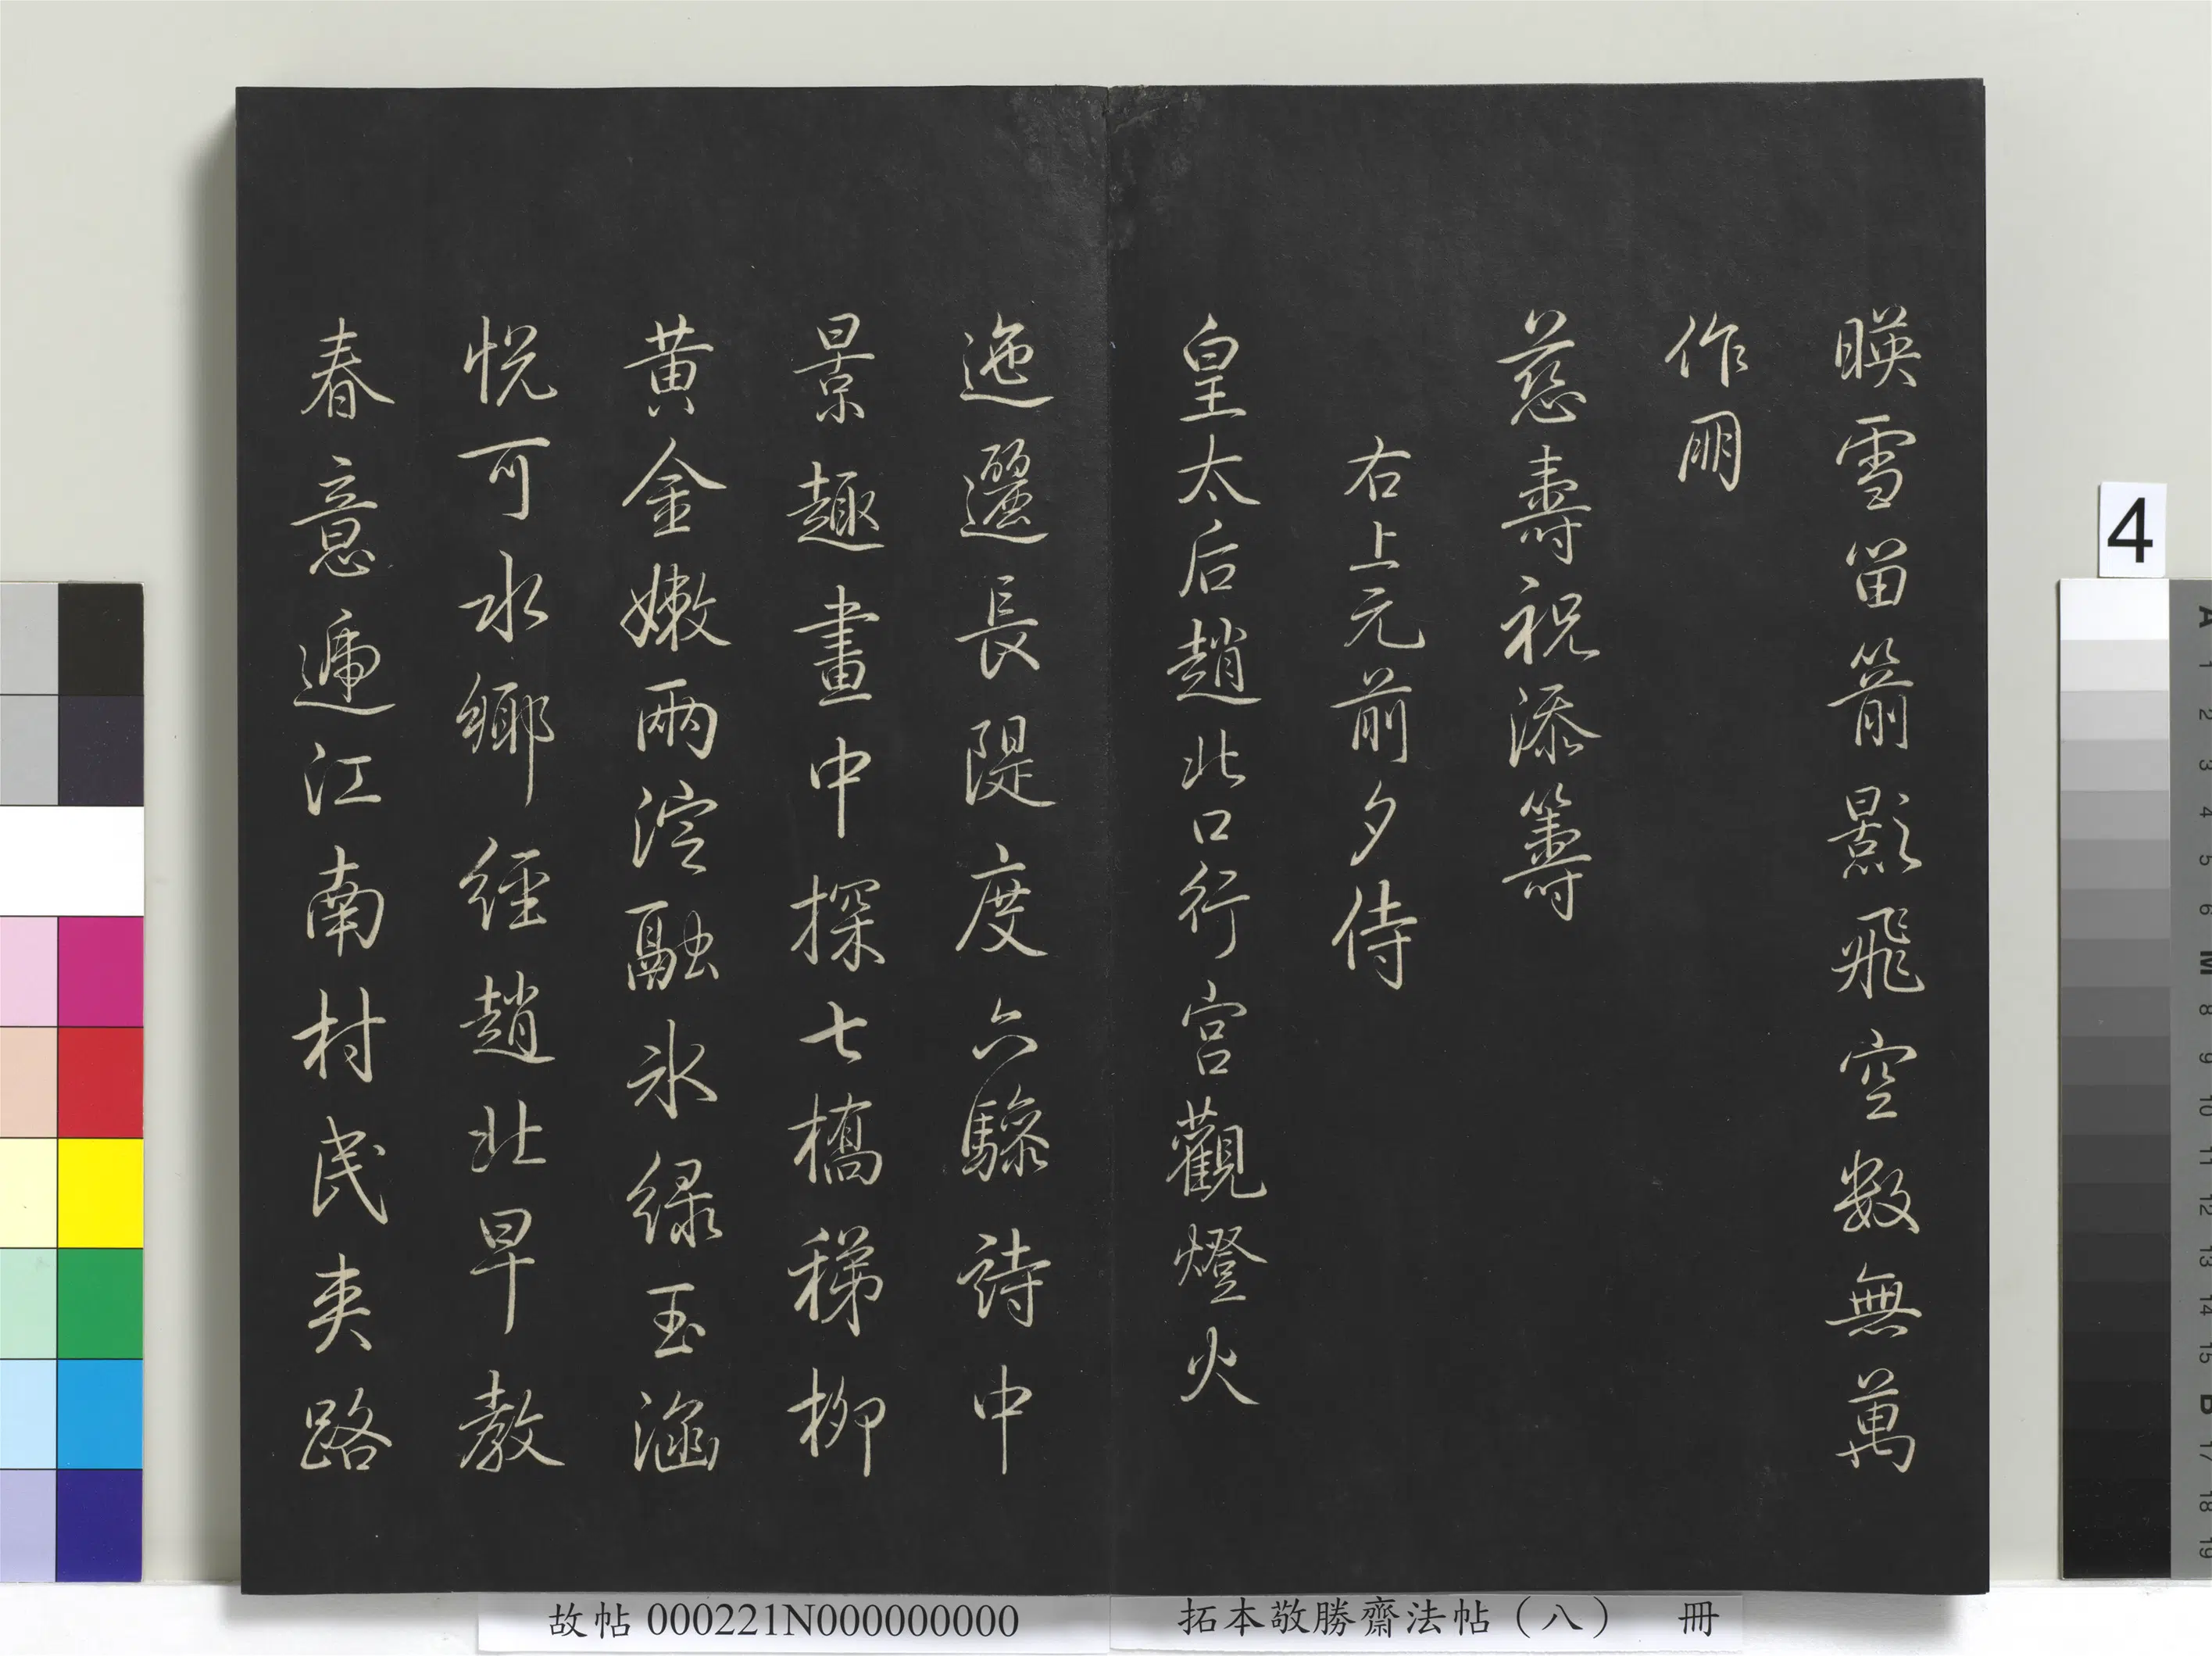 暎雪笛箭影飛空數無萬
作朋
慈壽祝添籌
右上元前夕侍
皇太后趙北口行宮觀燈火
迤邐長隄度六驂詩中
景趣畫中探七橋稊柳
黃金嫩兩淀融氷綠玉涵
恱可水鄉經趙北早教
春意遞江南村民夾路
4
故帖 000221N000000000
拓本敬勝齋法帖（八） 冊
A 1 2 3 4 5 6 M 8 9 10 11 12 13 14 15 B 17 18 19